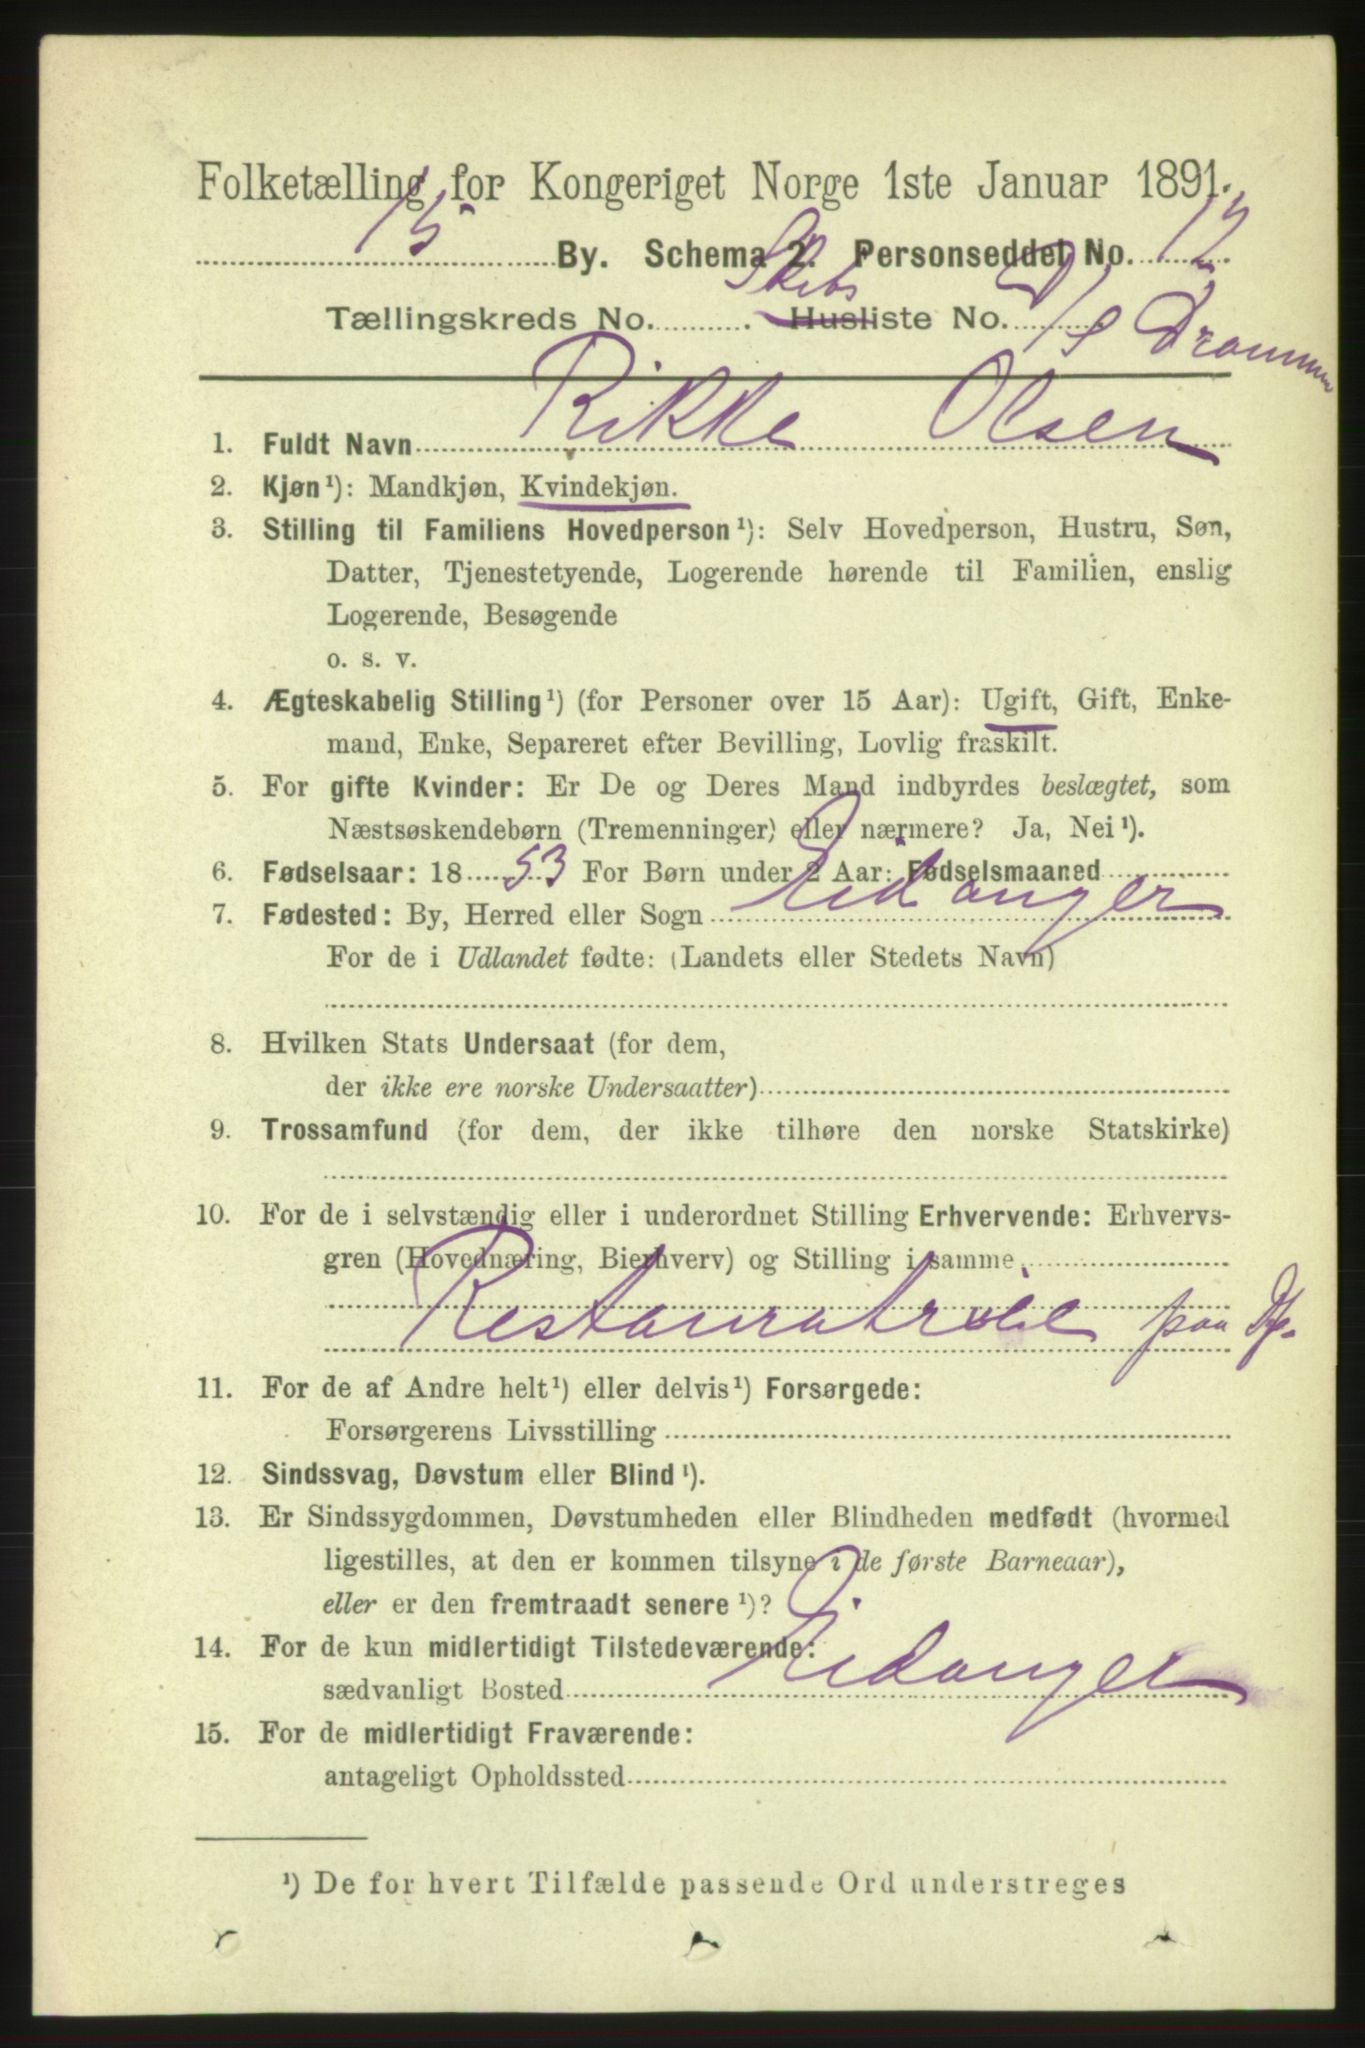 Folketælling for Kongeriget Norge 1ste Januar 1891.
15 By. Schema 2. Personseddel No. 12
Skibs
Tællingskreds No. . Husliste No. D/S Drammen
1. Fuldt Navn Rikke Olsen
2. Kjøn¹): Mandkjøn, Kvindekjøn.
3. Stilling til Familiens Hovedperson¹): Selv Hovedperson, Hustru, Søn,
Datter, Tjenestetyende, Logerende hørende til Familien, enslig
Logerende, Besøgende
o. s. v.
4. Ægteskabelig Stilling¹) (for Personer over 15 Aar): Ugift, Gift, Enke-
mand, Enke, Separeret efter Bevilling, Lovlig fraskilt.
5. For gifte Kvinder: Er De og Deres Mand indbyrdes beslægtet, som
Næstsøskendebørn (Tremenninger) eller nærmere? Ja, Nei¹).
6. Fødselsaar: 18 53 For Børn under 2 Aar: Fødselsmaaned
7. Fødested: By, Herred eller Sogn Eidanger
For de i Udlandet fødte: (Landets eller Stedets Navn)
8. Hvilken Stats Undersaat (for dem,
der ikke ere norske Undersaatter)
9. Trossamfund (for dem, der ikke tilhøre den norske Statskirke)
10. For de i selvstændig eller i underordnet Stilling Erhvervende: Erhvervs-
gren (Hovednæring, Bierhverv) og Stilling i samme
Restauratrice paa
11. For de af Andre helt¹) eller delvis¹) Forsørgede:
Forsørgerens Livsstilling
12. Sindssvag, Døvstum eller Blind¹).
13. Er Sindssygdommen, Døvstumheden eller Blindheden medfødt (hvormed
ligestilles, at den er kommen tilsyne i de første Barneaar),
eller er den fremtraadt senere¹)?
14. For de kun midlertidigt Tilstedeværende:
sædvanligt Bosted Eidanger
15. For de midlertidigt Fraværende:
antageligt Opholdssted
¹) De for hvert Tilfælde passende Ord understreges